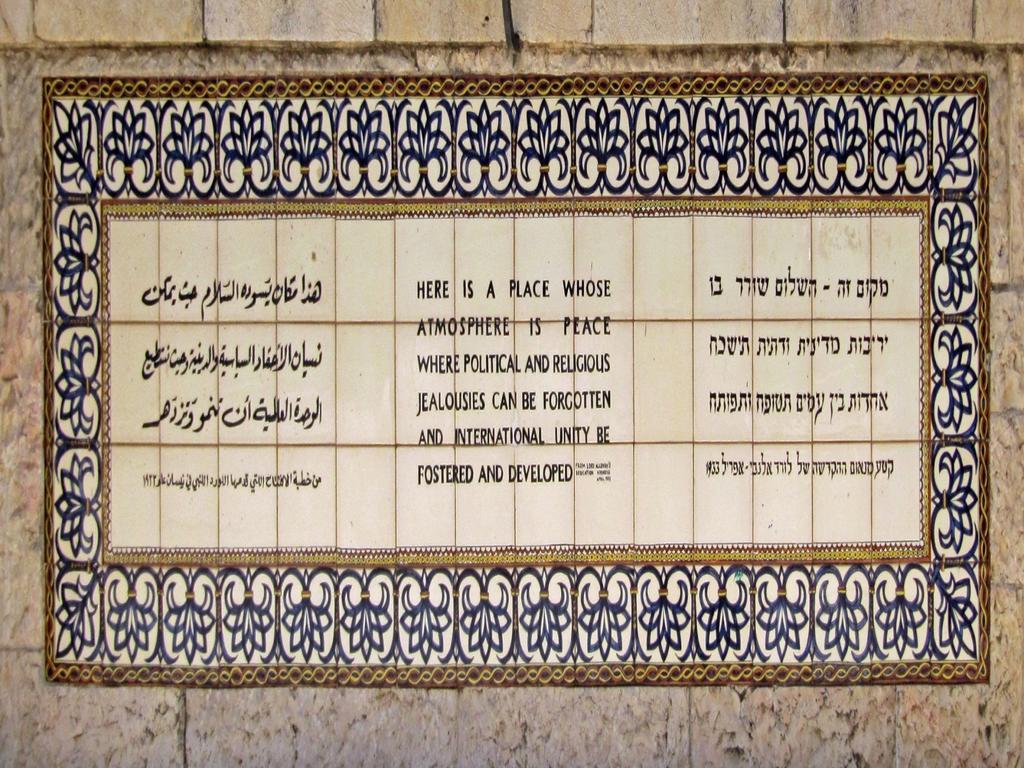 هذا مكان يسوده السّلام حيث يمكن
نسيان الأحقاد السياسية والدينية وحيث نستطيع
الوحدة العالمية أن تنمو وتزدهر
من خطبة الافتتاح التي قدمها اللورد اللنبي في نيسان عام ١٩٣٣
HERE IS A PLACE WHOSE
ATMOSPHERE IS PEACE
WHERE POLITICAL AND RELIGIOUS
JEALOUSIES CAN BE FORGOTTEN
AND INTERNATIONAL UNITY BE
FOSTERED AND DEVELOPED
FROM LORD ALLENBY'S
DEDICATION ADDRESS
APRIL, 1933
מקום זה - השלום שורר בו
יריבות מדינית ודתית תישכח
אחדות בין עמים תטופח ותפותח
קטע מנאום ההקדשה של לורד אלנבי - אפריל 1933